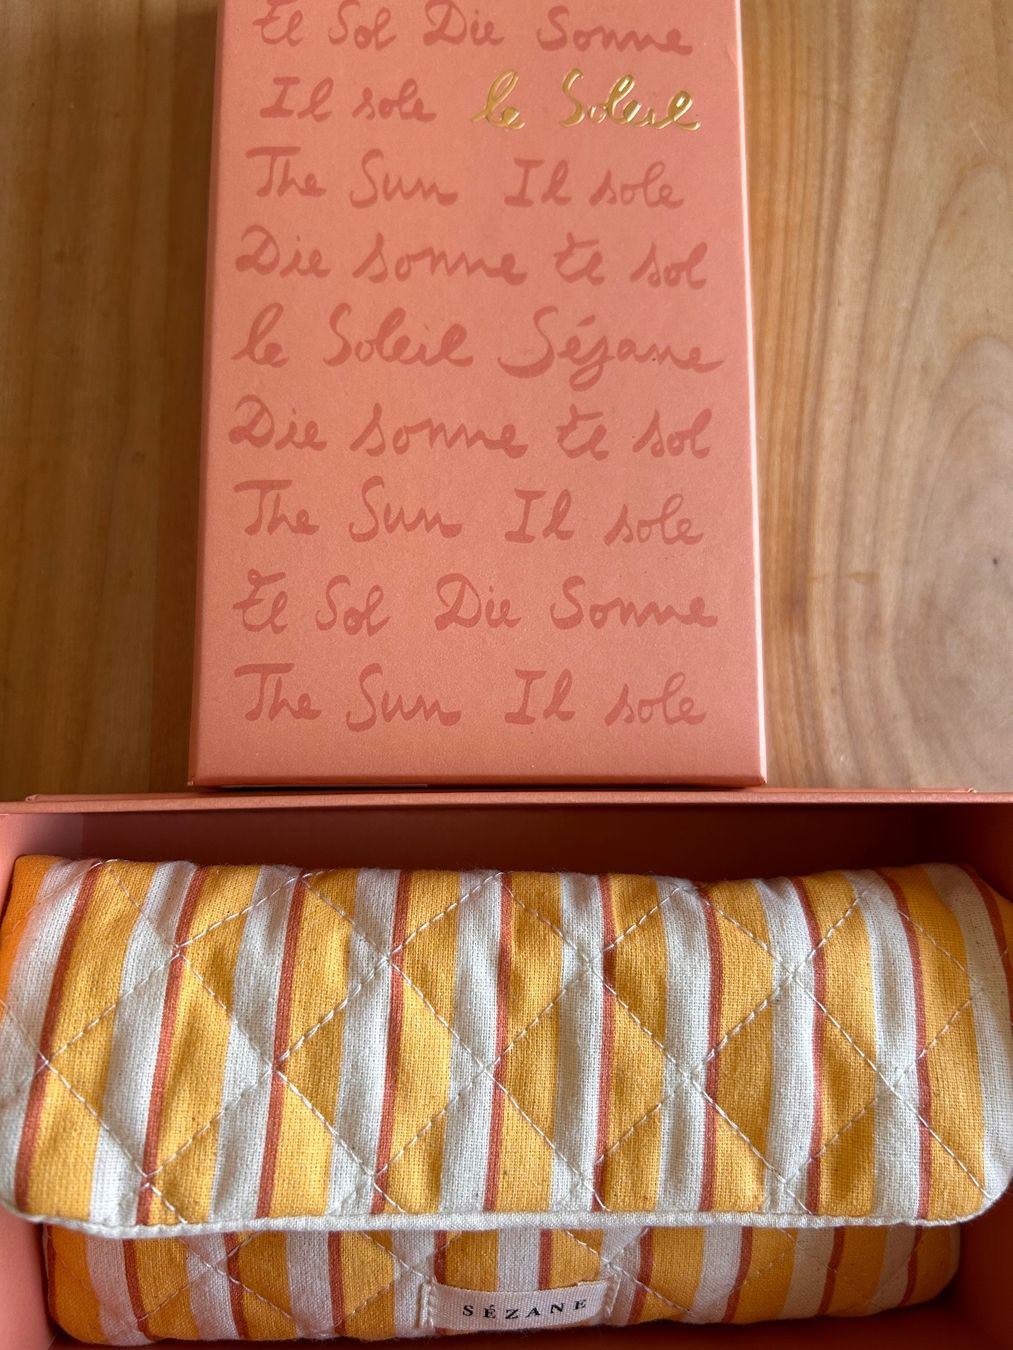 El Sol Die Sonne
Il sole le Soleil
The Sun Il sole
Die sonne El sol
le Soleil Sézane
Die sonne El sol
The Sun Il sole
El Sol Die Sonne
The Sun Il sole
SÉZANE